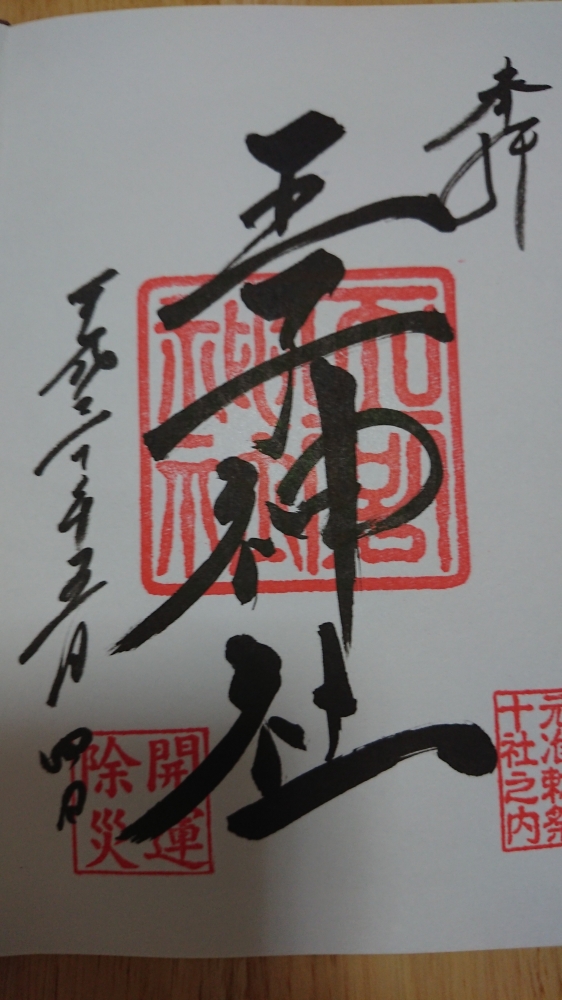 奉拝
王子神社
平成三十年五月四日
元治勅祭
十社之内
開運
除災